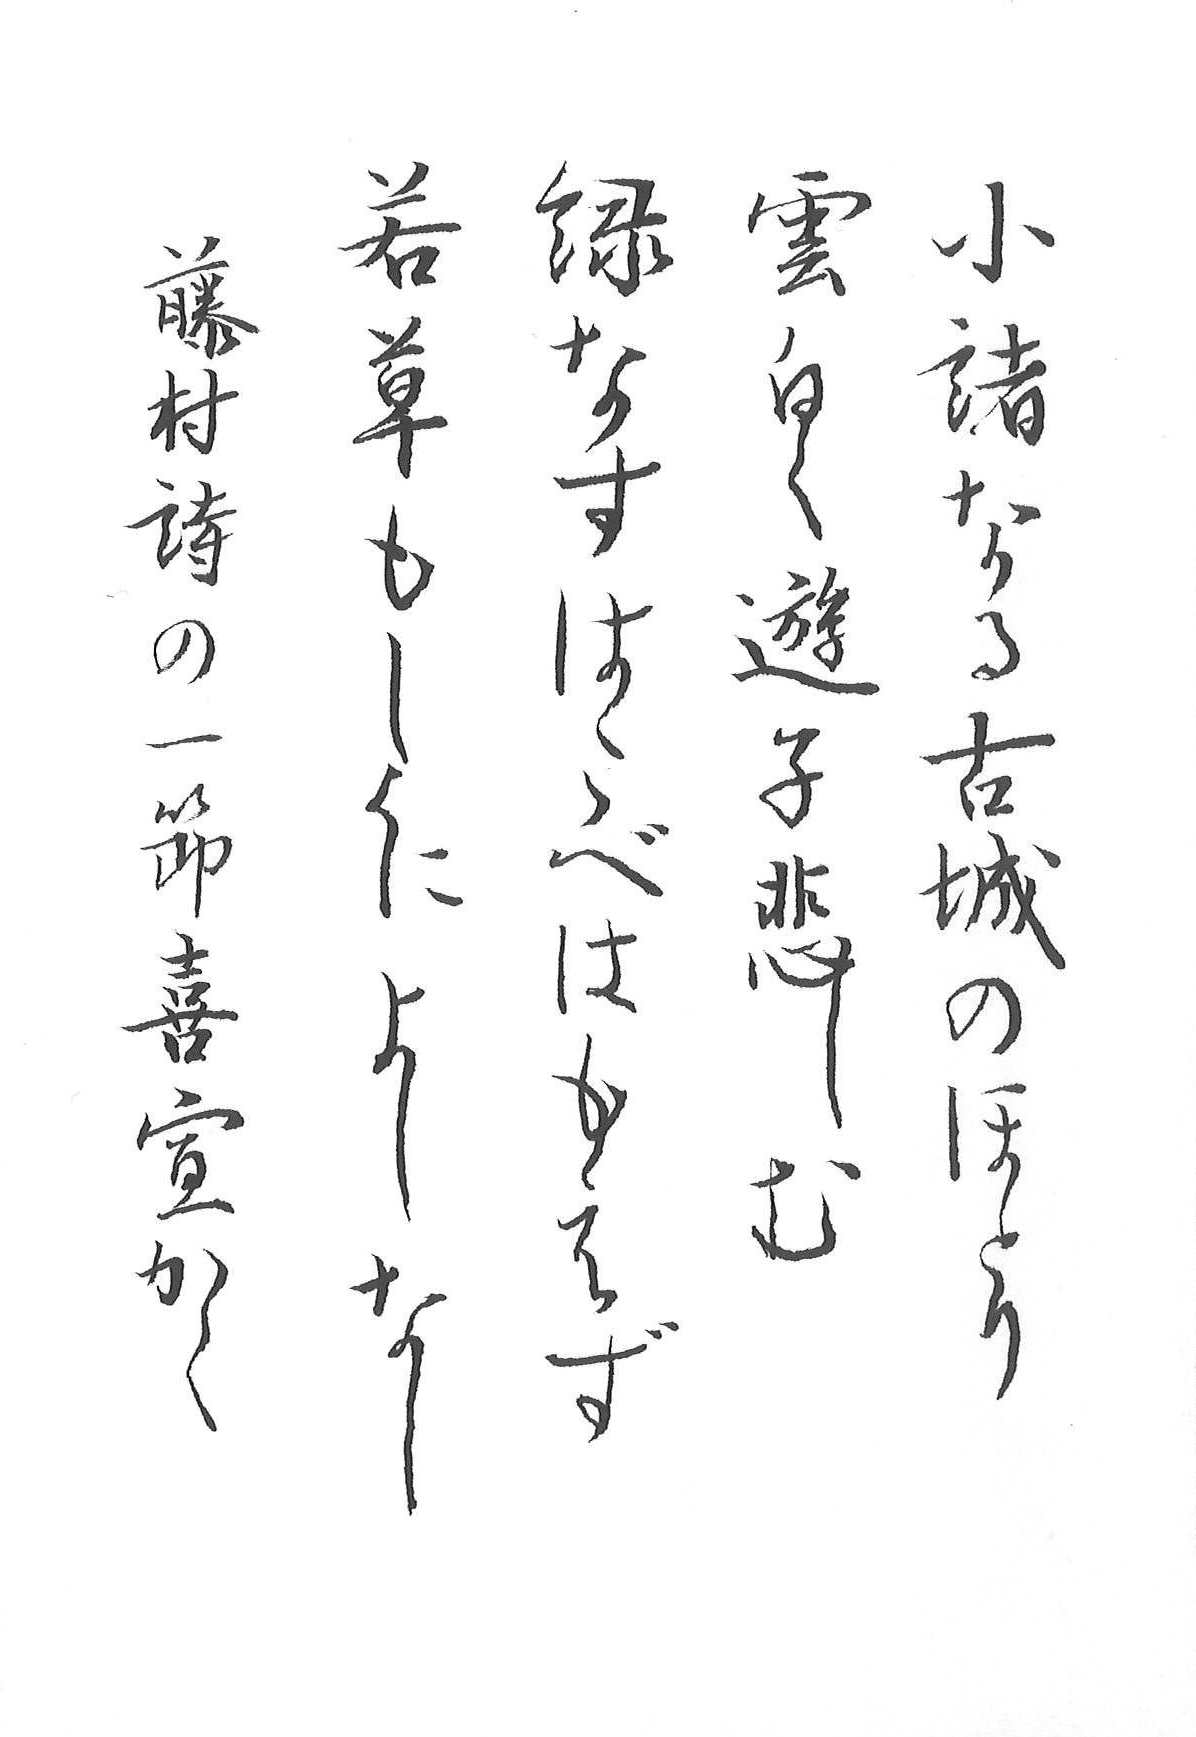 小諸なる古城のほとり
雲白く遊子悲しむ
緑なすはこべはもえず
若草もしくによしなし
藤村詩の一節喜宣かく